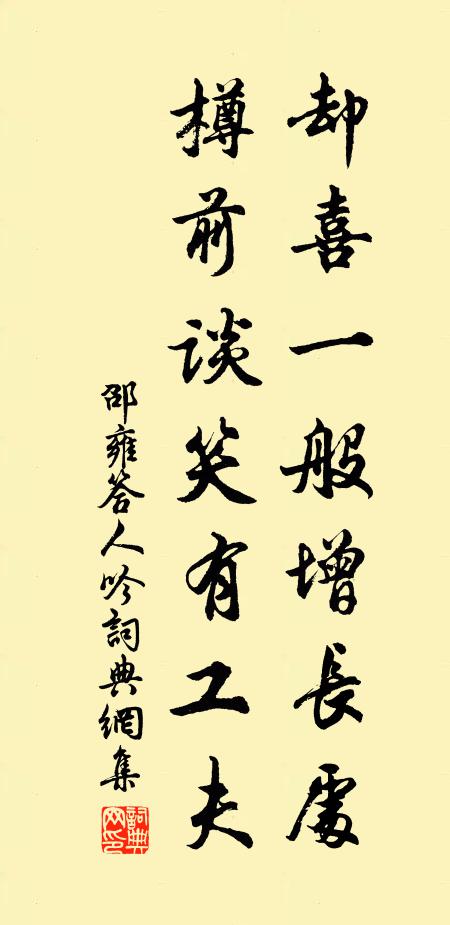 却喜一般增長處
樽前談笑有工夫
邵雍答人吟詞典網集
詞典网印